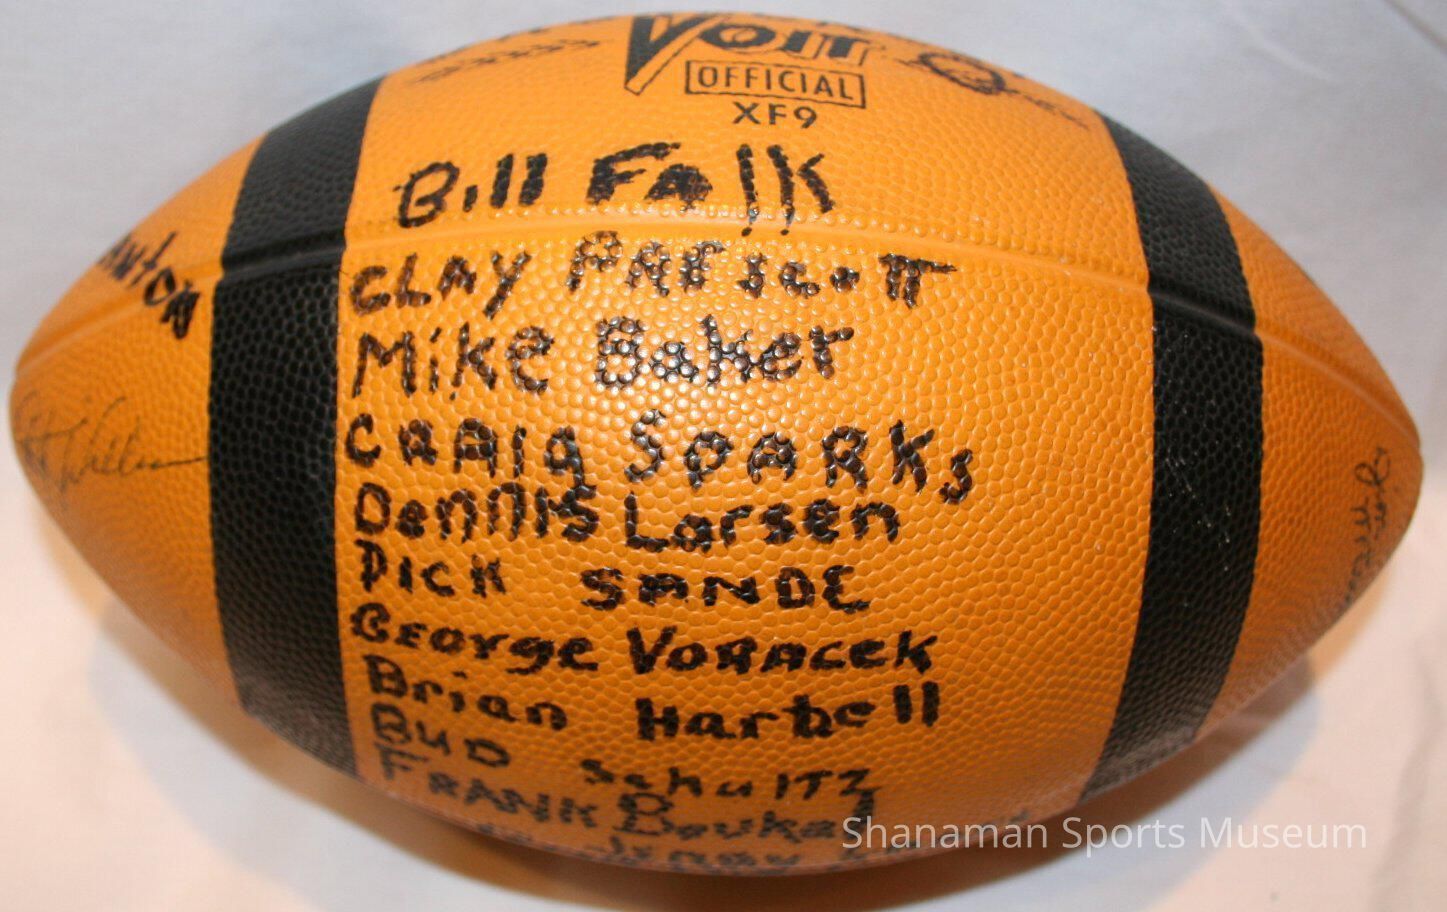 Voit
OFFICIAL
XF9
Bill Falk
CLAY PARSCOTT
Mike Baker
CRAIG SPARKS
Dennis Larsen
DICK SANDE
GEORGE VORACEK
Brian Harbell
BUD SchulTZ
FRANK
JERRY
ANTON
Shanaman Sports Museum